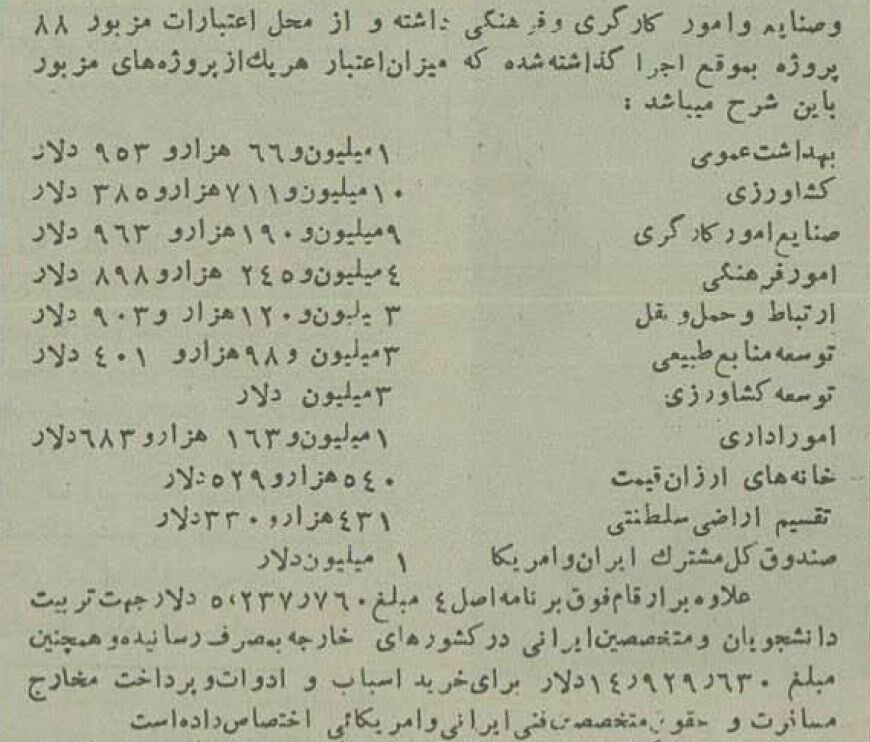 وصنایع وامور کارگری وفرهنگی داشته و از محل اعتبارات مزبور ۸۸
پروژه بموقع اجرا گذاشته‌شده که میزان‌اعتبار هریك‌از پروژه‌های مزبور
باین شرح میباشد :
بهداشت‌عمومی ۱میلیون‌و ٦٦ هزارو ۹۵۳ دلار
کشاورزی ۱۰میلیون‌و۷۱۱هزارو۳۸۵ دلار
صنایع‌امور کارگری ۹میلیون‌و ۱۹۰هزارو ۹٦۳ دلار
امورفرهنگی ٤میلیون‌و۲٤۵ هزارو۸۹۸ دلار
ارتباط وحمل‌و نقل ۳ میلیون‌و۱۲۰هزار و۹۰۳ دلار
توسعه‌منابع‌طبیعی ۳میلیون و۹۸هزارو ٤۰۱ دلار
توسعه کشاورزی ۳میلیون دلار
اموراداری ۱میلیون‌و۱٦۳ هزارو٦۸۳دلار
خانه‌های ارزان‌قیمت ۵٤۰هزارو۵۲۹دلار
تقسیم اراضی‌سلطنتی ٤۳۱هزارو۳۳۰دلار
صندوق کل‌مشترك ایران‌وامریکا ۱ میلیون‌دلار
علاوه‌برارقام‌فوق‌برنامه‌اصل٤ مبلغ۵،۲۳۷٫۷٦۰ دلارجهت‌تربیت
دانشجویان ومتخصصین‌ایرانی درکشورهای خارجه بمصرف‌رسانیده‌وهمچنین
مبلغ ۱٤٫۹۲۹٫٦۳۰دلار برای‌خرید اسباب و ادوات‌وپرداخت مخارج
مسافرت و حقوق‌متخصصین‌فنی‌ایرانی‌وامریکائی اختصاص‌داده‌است